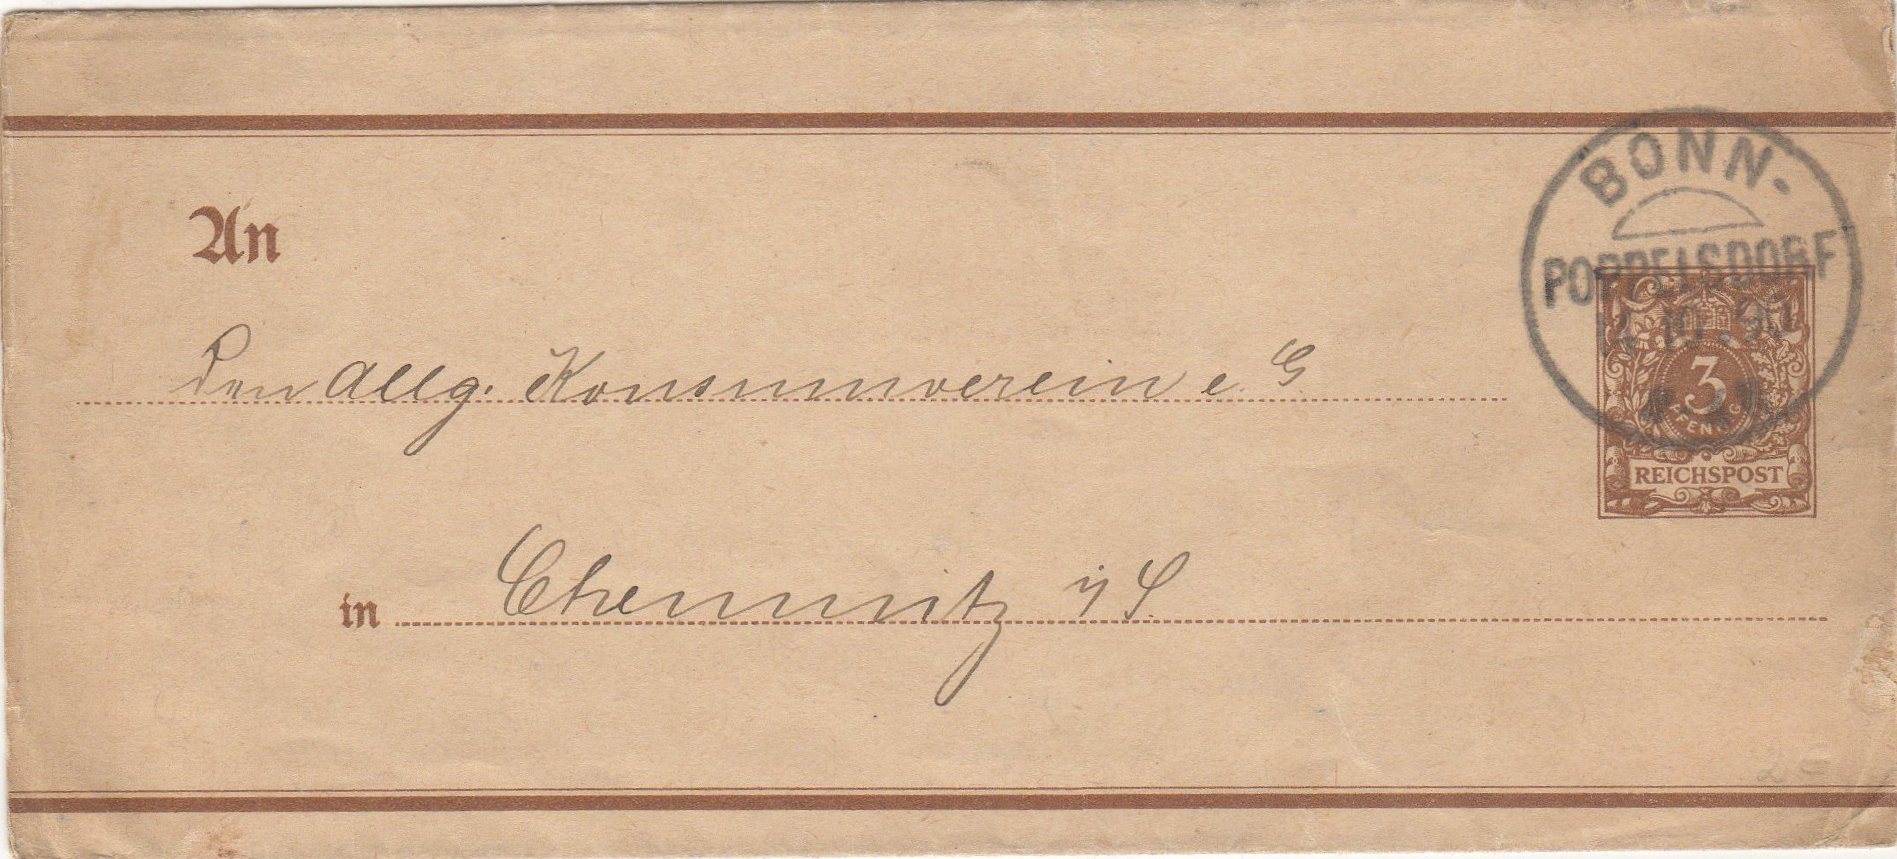 BONN-
POPPELSDORF
An
3
PFENNIG
REICHSPOST
Den Allg. Konsumverein e. G
in Chemnitz i/S.